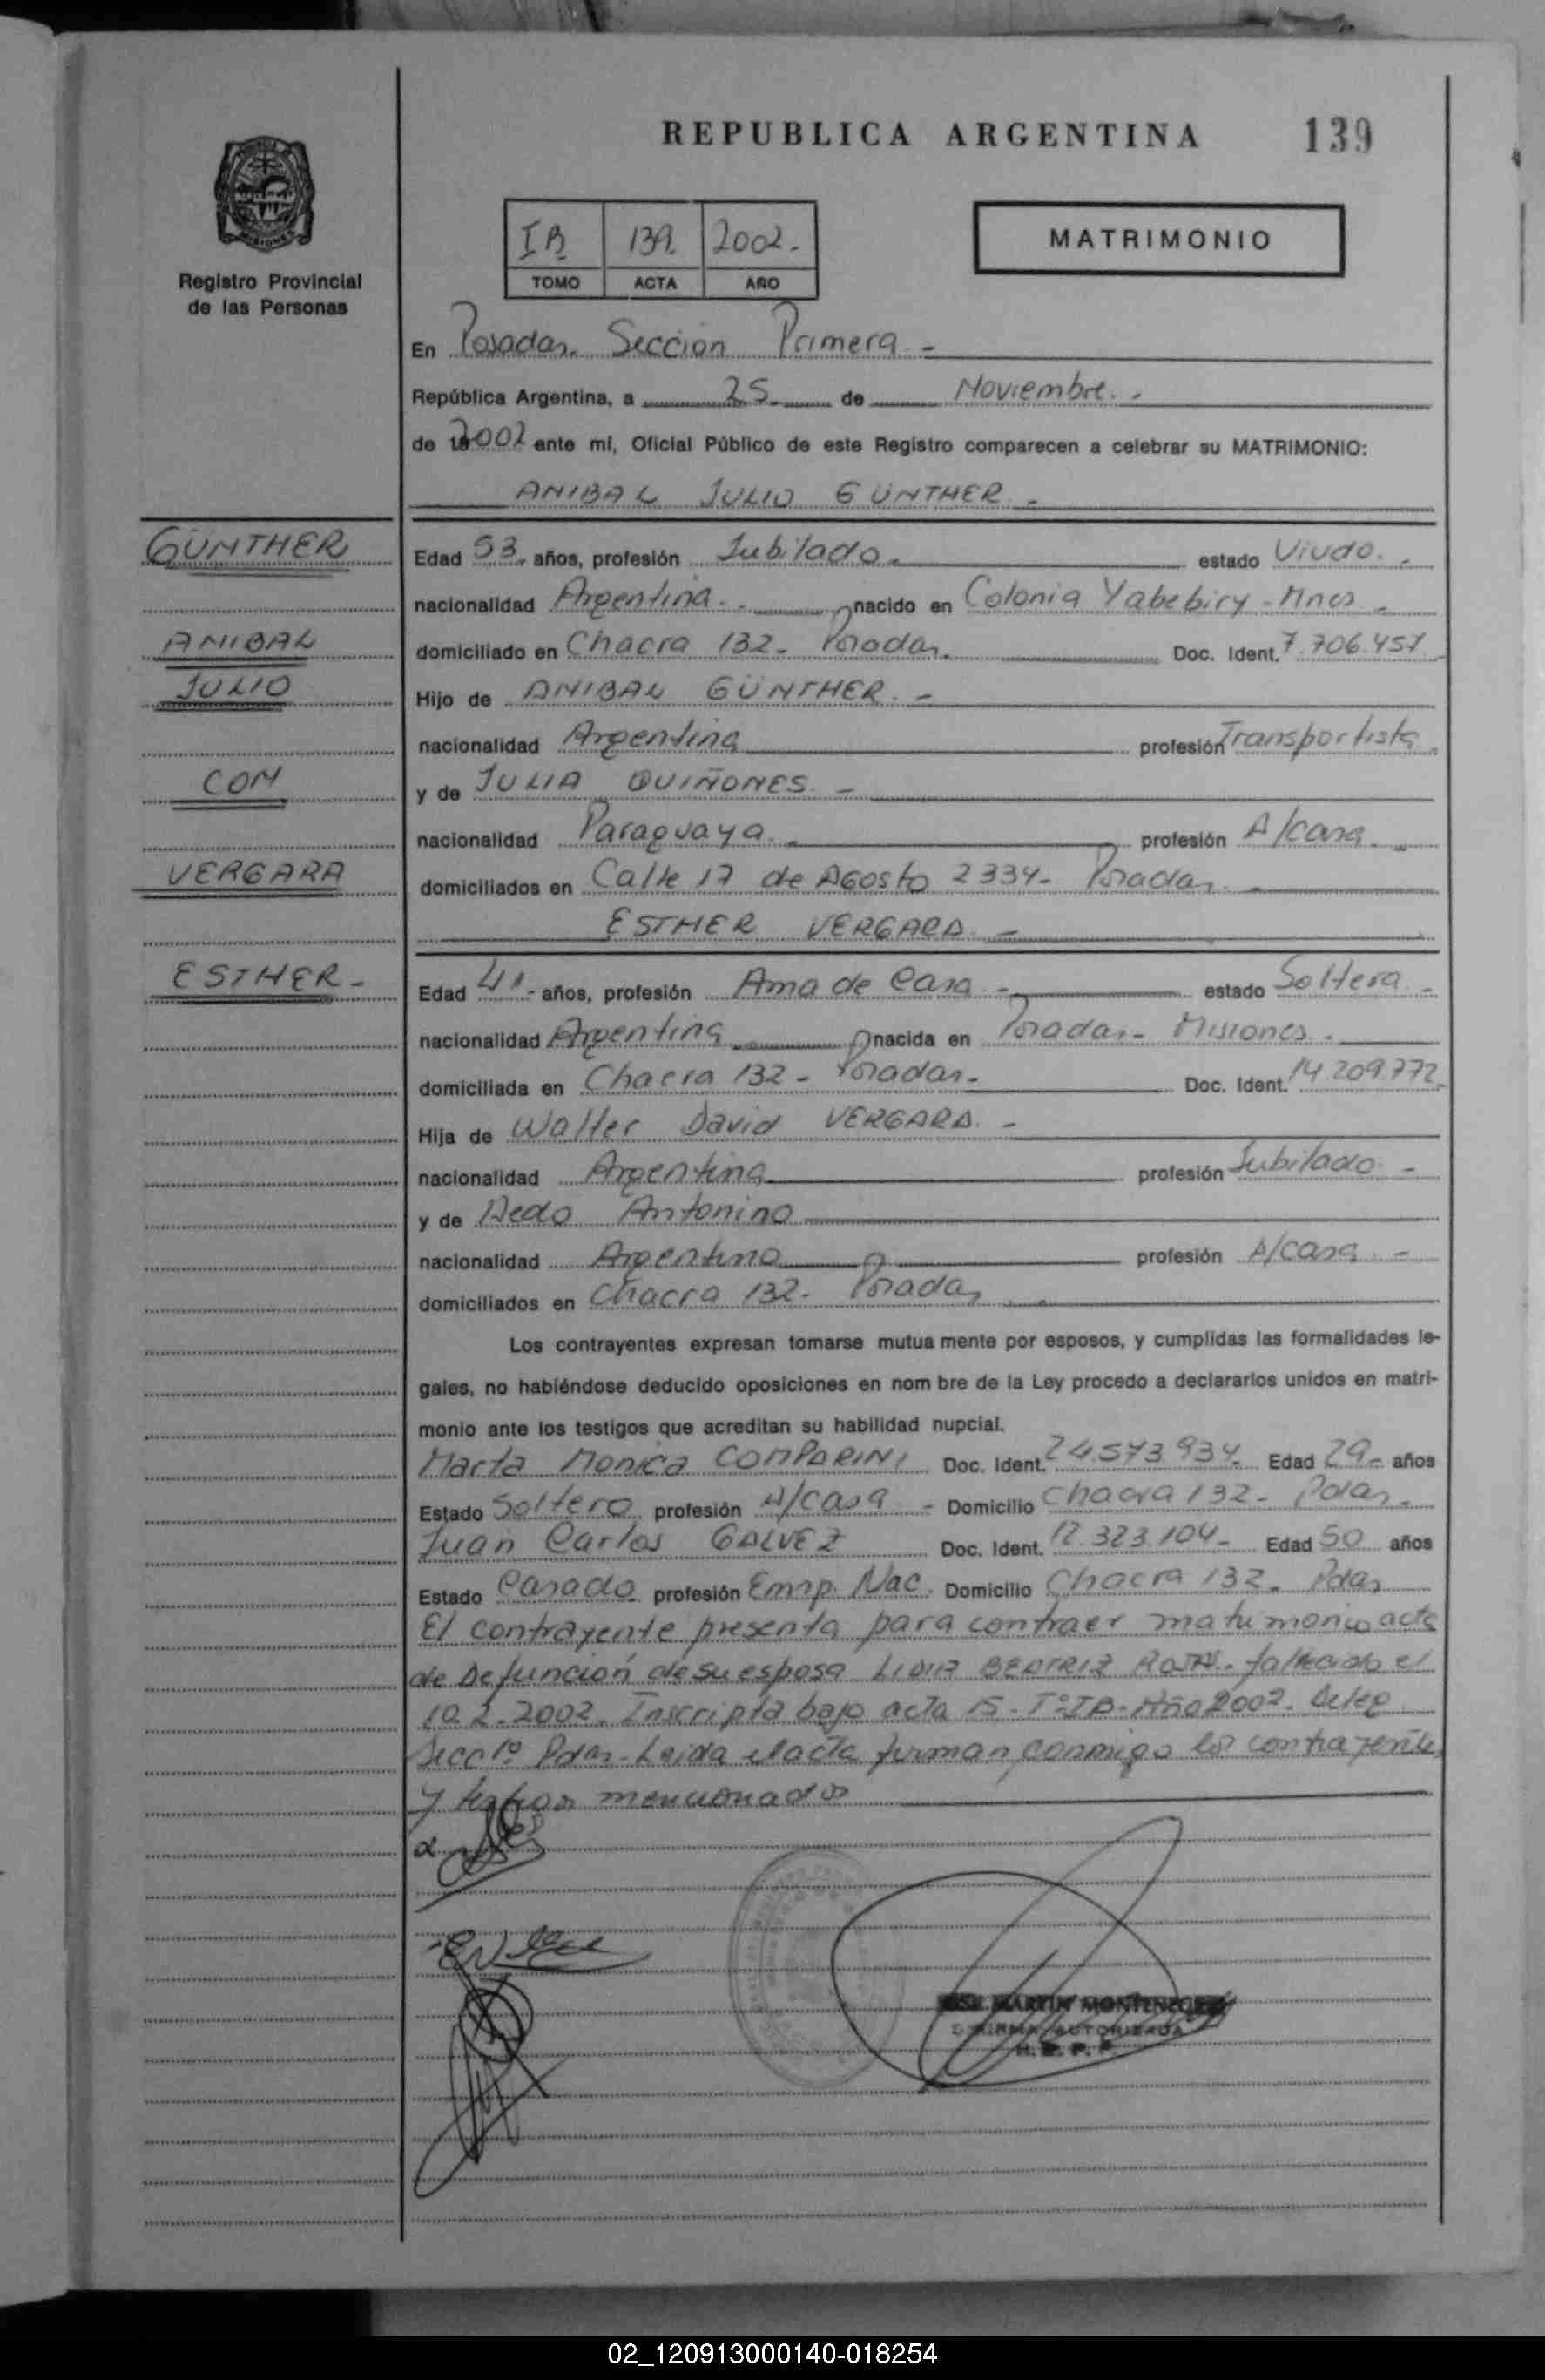 REPUBLICA ARGENTINA 139
MISIONES
Registro Provincial
de las Personas
IB 139 2002.-
TOMO ACTA AÑO
MATRIMONIO
En Posadas. Sección Primera -
República Argentina, a 25 de Noviembre.-
de 2002 ante mí, Oficial Público de este Registro comparecen a celebrar su MATRIMONIO:
ANIBAL JULIO GÜNTHER.-
GÜNTHER
ANIBAL
JULIO
CON
VERGARA
ESTHER-
Edad 53 años, profesión Jubilado.- estado Viudo.-
nacionalidad Argentina.- nacido en Colonia Yabebiry-Mnes-
domiciliado en Chacra 132- Posadas. Doc. Ident. 7.706.451
Hijo de ANIBAL GÜNTHER.-
nacionalidad Argentina profesión Transportista
y de JULIA QUIÑONES.-
nacionalidad Paraguaya. profesión A/casa.-
domiciliados en Calle 17 de Agosto 2334- Posadas.
ESTHER VERGARA.-
Edad 41.- años, profesión Ama de Casa.- estado Soltera.-
nacionalidad Argentina nacida en Posadas- Misiones.-
domiciliada en Chacra 132- Posadas.- Doc. Ident. 14.209.772.
Hija de Walter David VERGARA.-
nacionalidad Argentina profesión Jubilado.-
y de Antonina
nacionalidad Argentina profesión A/casa.-
domiciliados en Chacra 132- Posadas.
Los contrayentes expresan tomarse mutua mente por esposos, y cumplidas las formalidades le-
gales, no habiéndose deducido oposiciones en nom bre de la Ley procedo a declararlos unidos en matri-
monio ante los testigos que acreditan su habilidad nupcial.
Marta Monica COMPARINI Doc. Ident. 24.573.934. Edad 29- años
Estado Soltera profesión A/casa - Domicilio Chacra 132- Pdas.
Juan Carlos GALVEZ Doc. Ident. 12.323.104- Edad 50 años
Estado Casado profesión Emp. Nac. Domicilio Chacra 132. Pdas
El contrayente presenta para contraer matrimonio acta
de Defunción de su esposa LIDIA BEATRIZ ROJAS- fallecida el
10.2.2002. Inscripta bajo acta 15- T°IB- Año 2002. Deleg
Secc 1° Pdas- Leida el acta firman conmigo los contrayentes
y testigos mencionados
MARTIN MONTENEGRO
FIRMA AUTORIZADA
02_120913000140-018254